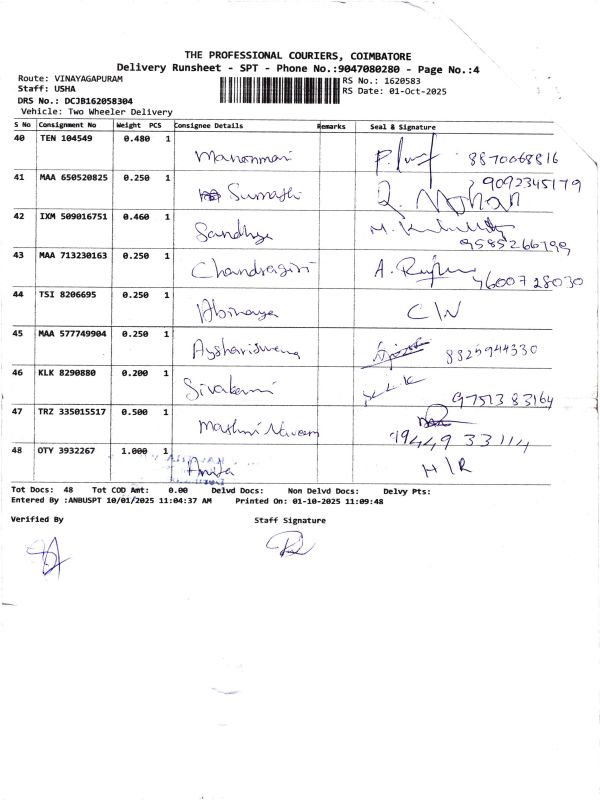 THE PROFESSIONAL COURIERS, COIMBATORE
Delivery Runsheet - SPT - Phone No.:9047080280 - Page No.:4
Route: VINAYAGAPURAM
RS No.: 1620583
Staff: USHA
RS Date: 01-Oct-2025
DRS No.: DCJB162058304
Vehicle: Two Wheeler Delivery
S No Consignment No Weight PCS Consignee Details Remarks Seal & Signature
40 TEN 104549 0.480 1
Manonmani 8870068816
41 MAA 650520825 0.250 1
Sumathi R. Mohan 9092345179
42 IXM 509016751 0.460 1
Sandhya 9585266799
43 MAA 713230163 0.250 1
Chandragiri 7600728030
44 TSI 8206695 0.250 1
Abinaya C\N
45 MAA 577749904 0.250 1
8825944330
46 KLK 8290880 0.200 1
Sivakami 9751383164
47 TRZ 335015517 0.500 1
48 OTY 3932267 1.000 1
Anita H\R
Tot Docs: 48 Tot COD Amt: 0.00 Delvd Docs: Non Delvd Docs: Delvy Pts:
Entered By :ANBUSPT 10/01/2025 11:04:37 AM Printed On: 01-10-2025 11:09:48
Verified By Staff Signature